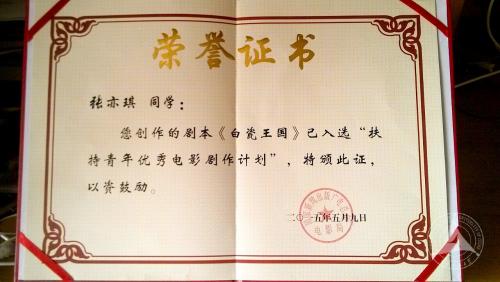 荣誉证书
张亦琪 同学：
您创作的剧本《白瓷王国》已入选“扶
持青年优秀电影剧作计划”，特颁此证，
以资鼓励。
二〇一五年五月九日
电影局